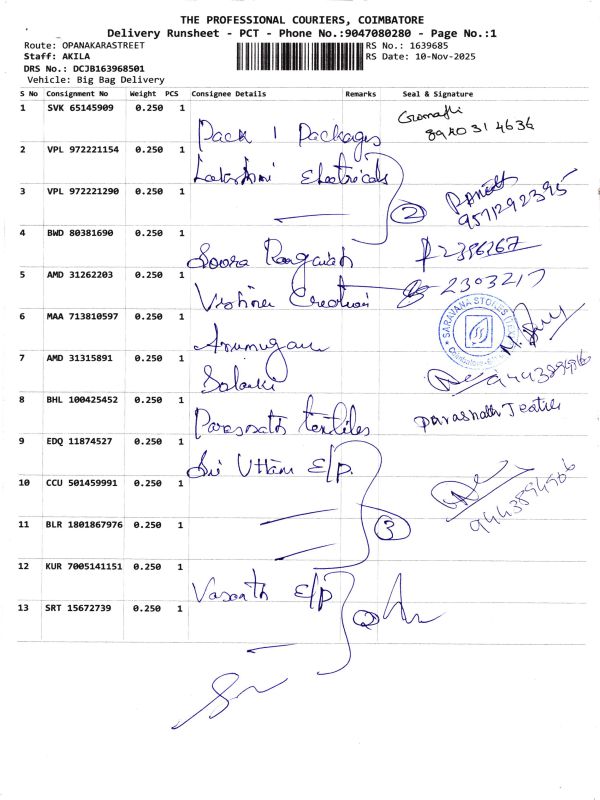 THE PROFESSIONAL COURIERS, COIMBATORE
Delivery Runsheet - PCT - Phone No.:9047080280 - Page No.:1
Route: OPANAKARASTREET
Staff: AKILA
DRS No.: DCJB163968501
Vehicle: Big Bag Delivery
RS No.: 1639685
RS Date: 10-Nov-2025
S No Consignment No Weight PCS Consignee Details Remarks Seal & Signature
1 SVK 65145909 0.250 1 Pack 1 Packages
8940314636
2 VPL 972221154 0.250 1 Lakshmi Electricals
3 VPL 972221290 0.250 1
2
9571292395
4 BWD 80381690 0.250 1 Soora
2386267
5 AMD 31262203 0.250 1 Vishnu Creation
2303217
6 MAA 713810597 0.250 1 Arumugam
SARAVANA STORES
7 AMD 31315891 0.250 1 Solanki
8 BHL 100425452 0.250 1 Parasnath textiles
Parasnath
9 EDQ 11874527 0.250 1 Sri Uttam E/p.
10 CCU 501459991 0.250 1
11 BLR 1801867976 0.250 1
3
12 KUR 7005141151 0.250 1 Vasanth E/p
2
13 SRT 15672739 0.250 1